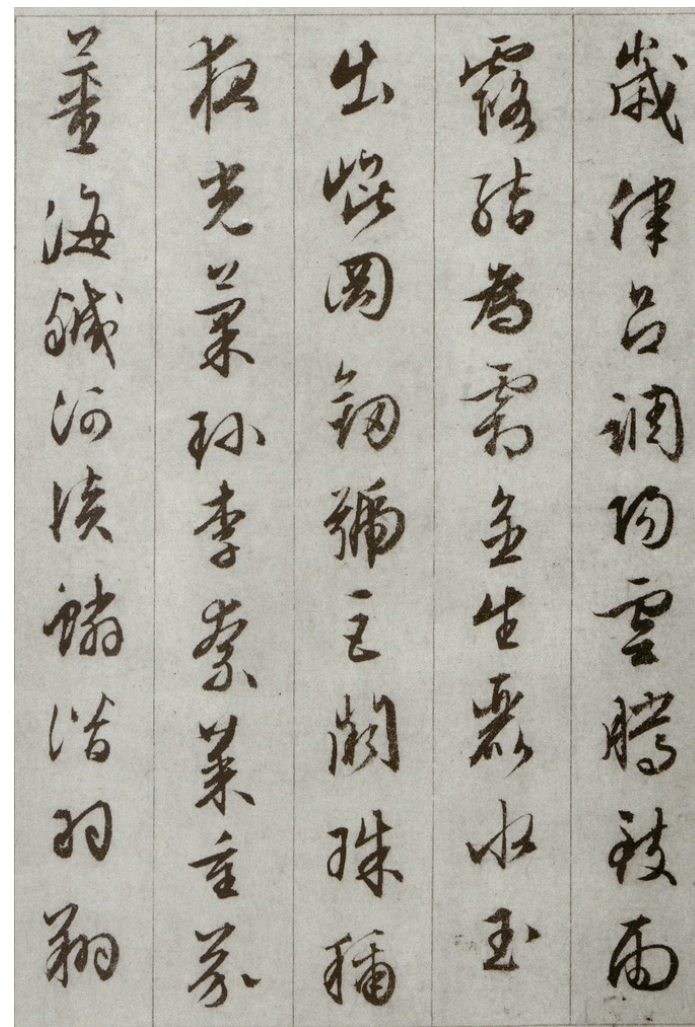 歲律呂調陽雲騰致雨
露結為霜金生麗水玉
出崐岡劒號巨闕珠稱
夜光菓珍李柰菜重芥
薑海鹹河淡鱗潛羽翔